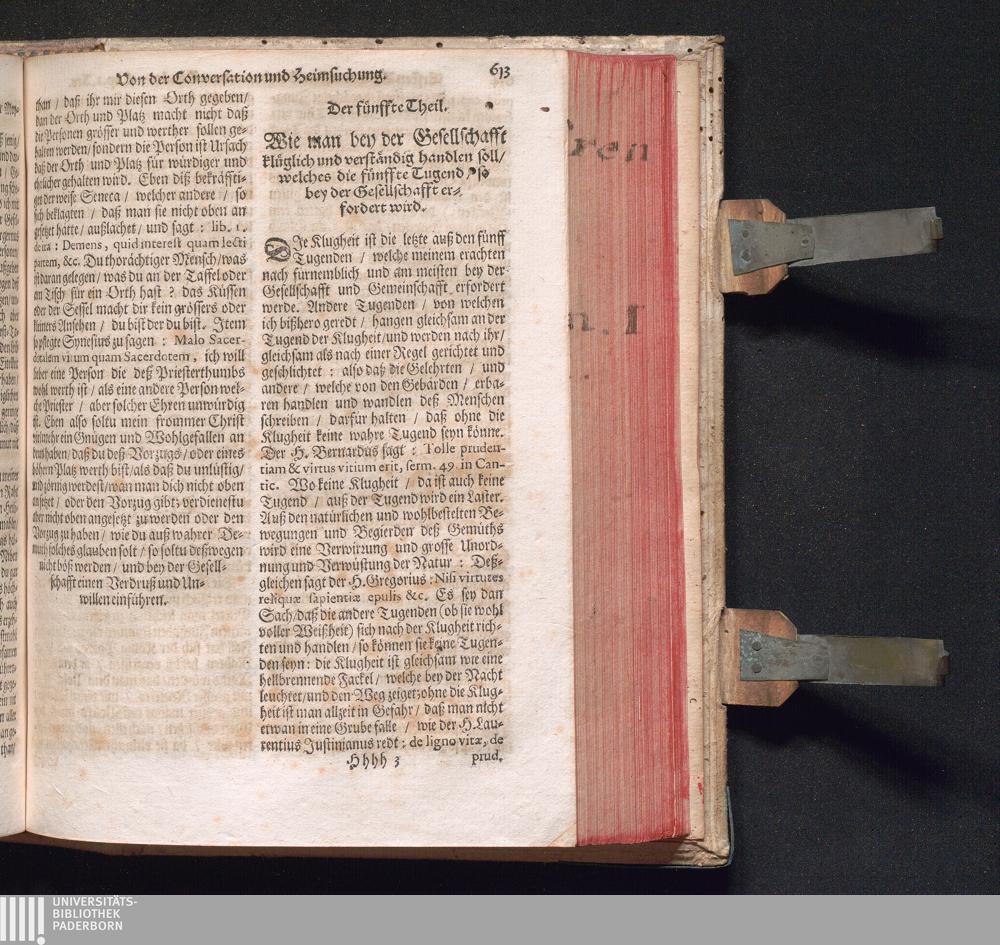 Von der Conversation und Heimsuchung. 613
than / daß ihr mir diesen Orth gegeben /
dan der Orth und Platz macht nicht daß
die Personen grösser und werther sollen ge-
halten werden / sondern die Person ist Ursach
daß der Orth und Platz für würdiger und
ehrlicher gehalten wird. Eben diß bekräffti-
get der weise Seneca / welcher andere / so
sich beklagten / daß man sie nicht oben an
gesetzt hätte / außlachet / und sagt : lib. 1.
de ira : Demens, quid interest quam lecti
partem, &c. Du thorächtiger Mensch / was
ist daran gelegen / was du an der Taffel oder
am Tisch für ein Orth hast ? das Küssen
oder der Sessel macht dir kein grössers oder
kleiners Ansehen / du bist der du bist. Item
so pflegte Synesius zu sagen : Malo Sacer-
dotalem virum quam Sacerdotem, ich will
lieber eine Person die deß Priesterthumbs
wohl werth ist / als eine andere Person wel-
che Priester / aber solcher Ehren unwürdig
ist. Eben also soltu mein frommer Christ
vielmehr ein Gnügen und Wohlgefallen an
dem haben / daß du deß Vorzugs / oder eines
höhern Platz werth bist / als daß du unlüstig /
und zörnig werdest / wan man dich nicht oben
ansetzet / oder den Vorzug gibt ; verdienestu
aber nicht oben angesetzt zu werden oder den
Vorzug zu haben / wie du auß wahrer De-
muth solches glauben solt / so soltu deßwegen
nicht böß werden / und bey der Gesell-
schafft einen Verdruß und Un-
willen einführen.
Der fünffte Theil.
Wie man bey der Gesellschafft
klüglich und verständig handlen soll /
welches die fünffte Tugend / so
bey der Gesellschafft er-
fordert wird.
DIe Klugheit ist die letzte auß den fünff
Tugenden / welche meinem erachten
nach fürnemblich und am meisten bey der
Gesellschafft und Gemeinschafft erfordert
werde. Andere Tugenden / von welchen
ich bißhero geredt / hangen gleichsam an der
Tugend der Klugheit / und werden nach ihr /
gleichsam als nach einer Regel gerichtet und
geschlichtet : also daß die Gelehrten / und
andere / welche von den Gebärden / erba-
ren handlen und wandlen deß Menschen
schreiben / darfür halten / daß ohne die
Klugheit keine wahre Tugend seyn könne.
Der H. Bernardus sagt : Tolle pruden-
tiam & virtus vitium erit, serm. 49. in Can-
tic. Wo keine Klugheit / da ist auch keine
Tugend / auß der Tugend wird ein Laster.
Auß den natürlichen und wohlbestelten Be-
wegungen und Begierden deß Gemüths
wird eine Verwirrung und grosse Unord-
nung und Verwüstung der Natur : Deß-
gleichen sagt der H. Gregorius : Nisi virtutes
reliquæ sapientiæ epulis &c. Es sey dan
Sach / daß die andere Tugenden (ob sie wohl
voller Weißheit) sich nach der Klugheit rich-
ten und handlen / so können sie keine Tugen-
den seyn : die Klugheit ist gleichsam wie eine
hellbrennende Fackel / welche bey der Nacht
leuchtet / und den Weg zeiget ; ohne die Klug-
heit ist man allzeit in Gefahr / daß man nicht
etwan in eine Grube falle / wie der H. Lau-
rentius Justinianus redt : de ligno vitæ, de
Hhhh 3 prud.
UNIVERSITÄTS-
BIBLIOTHEK
PADERBORN